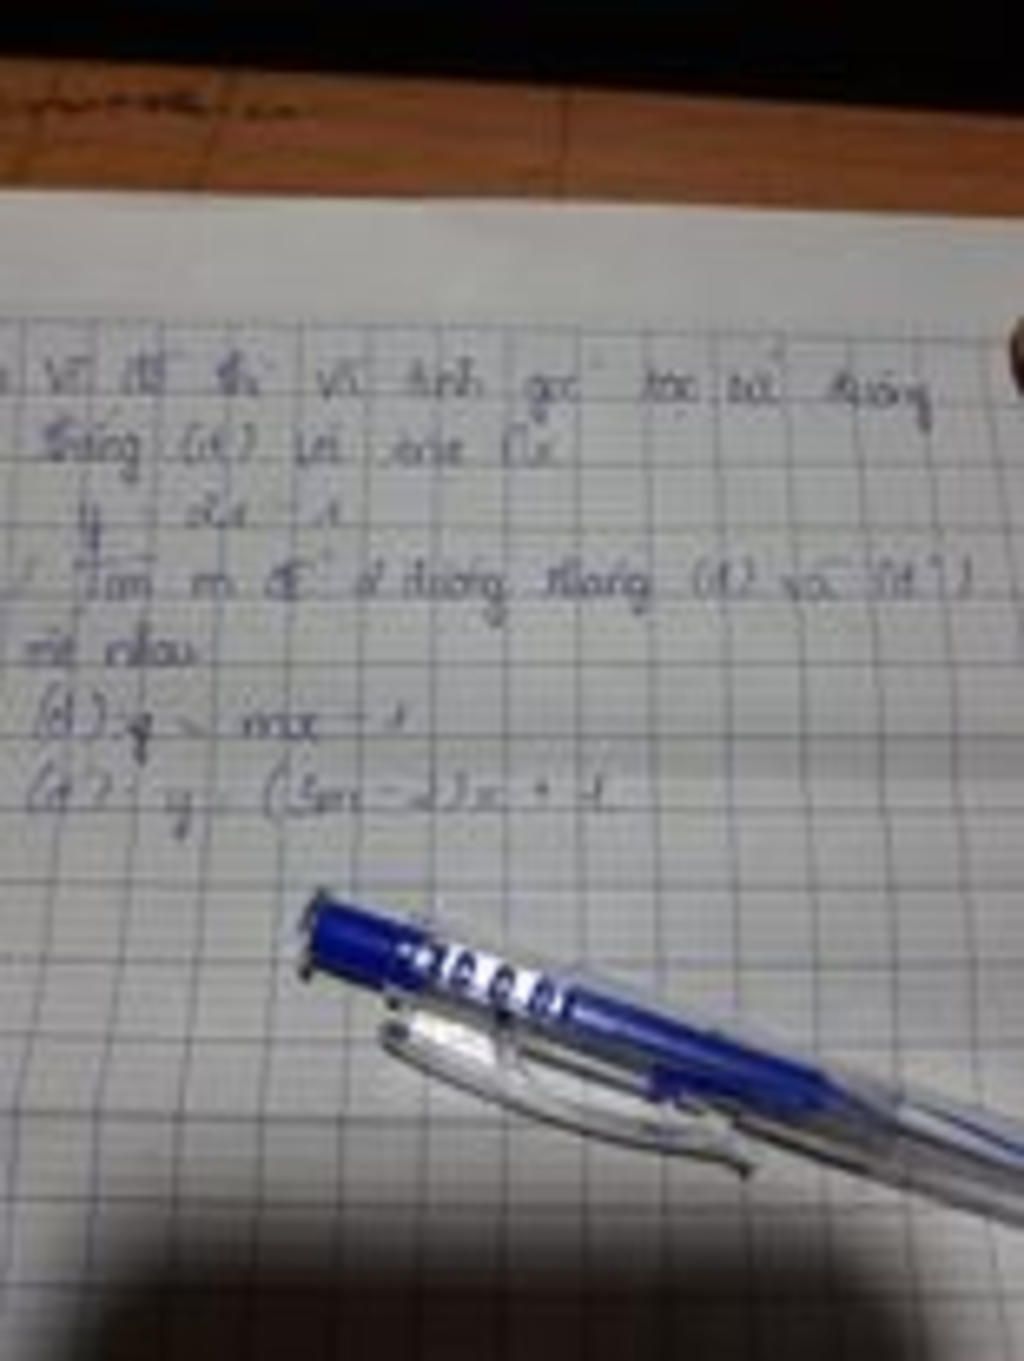 Vẽ đồ thị và tính góc tạo bởi đường
thẳng (d) với trục Ox
y = 2x - 1
Tìm m để 2 đường thẳng (d) và (d')
nhau
(d): y = mx - 1
(d'): y = (3m - 2)x + 1